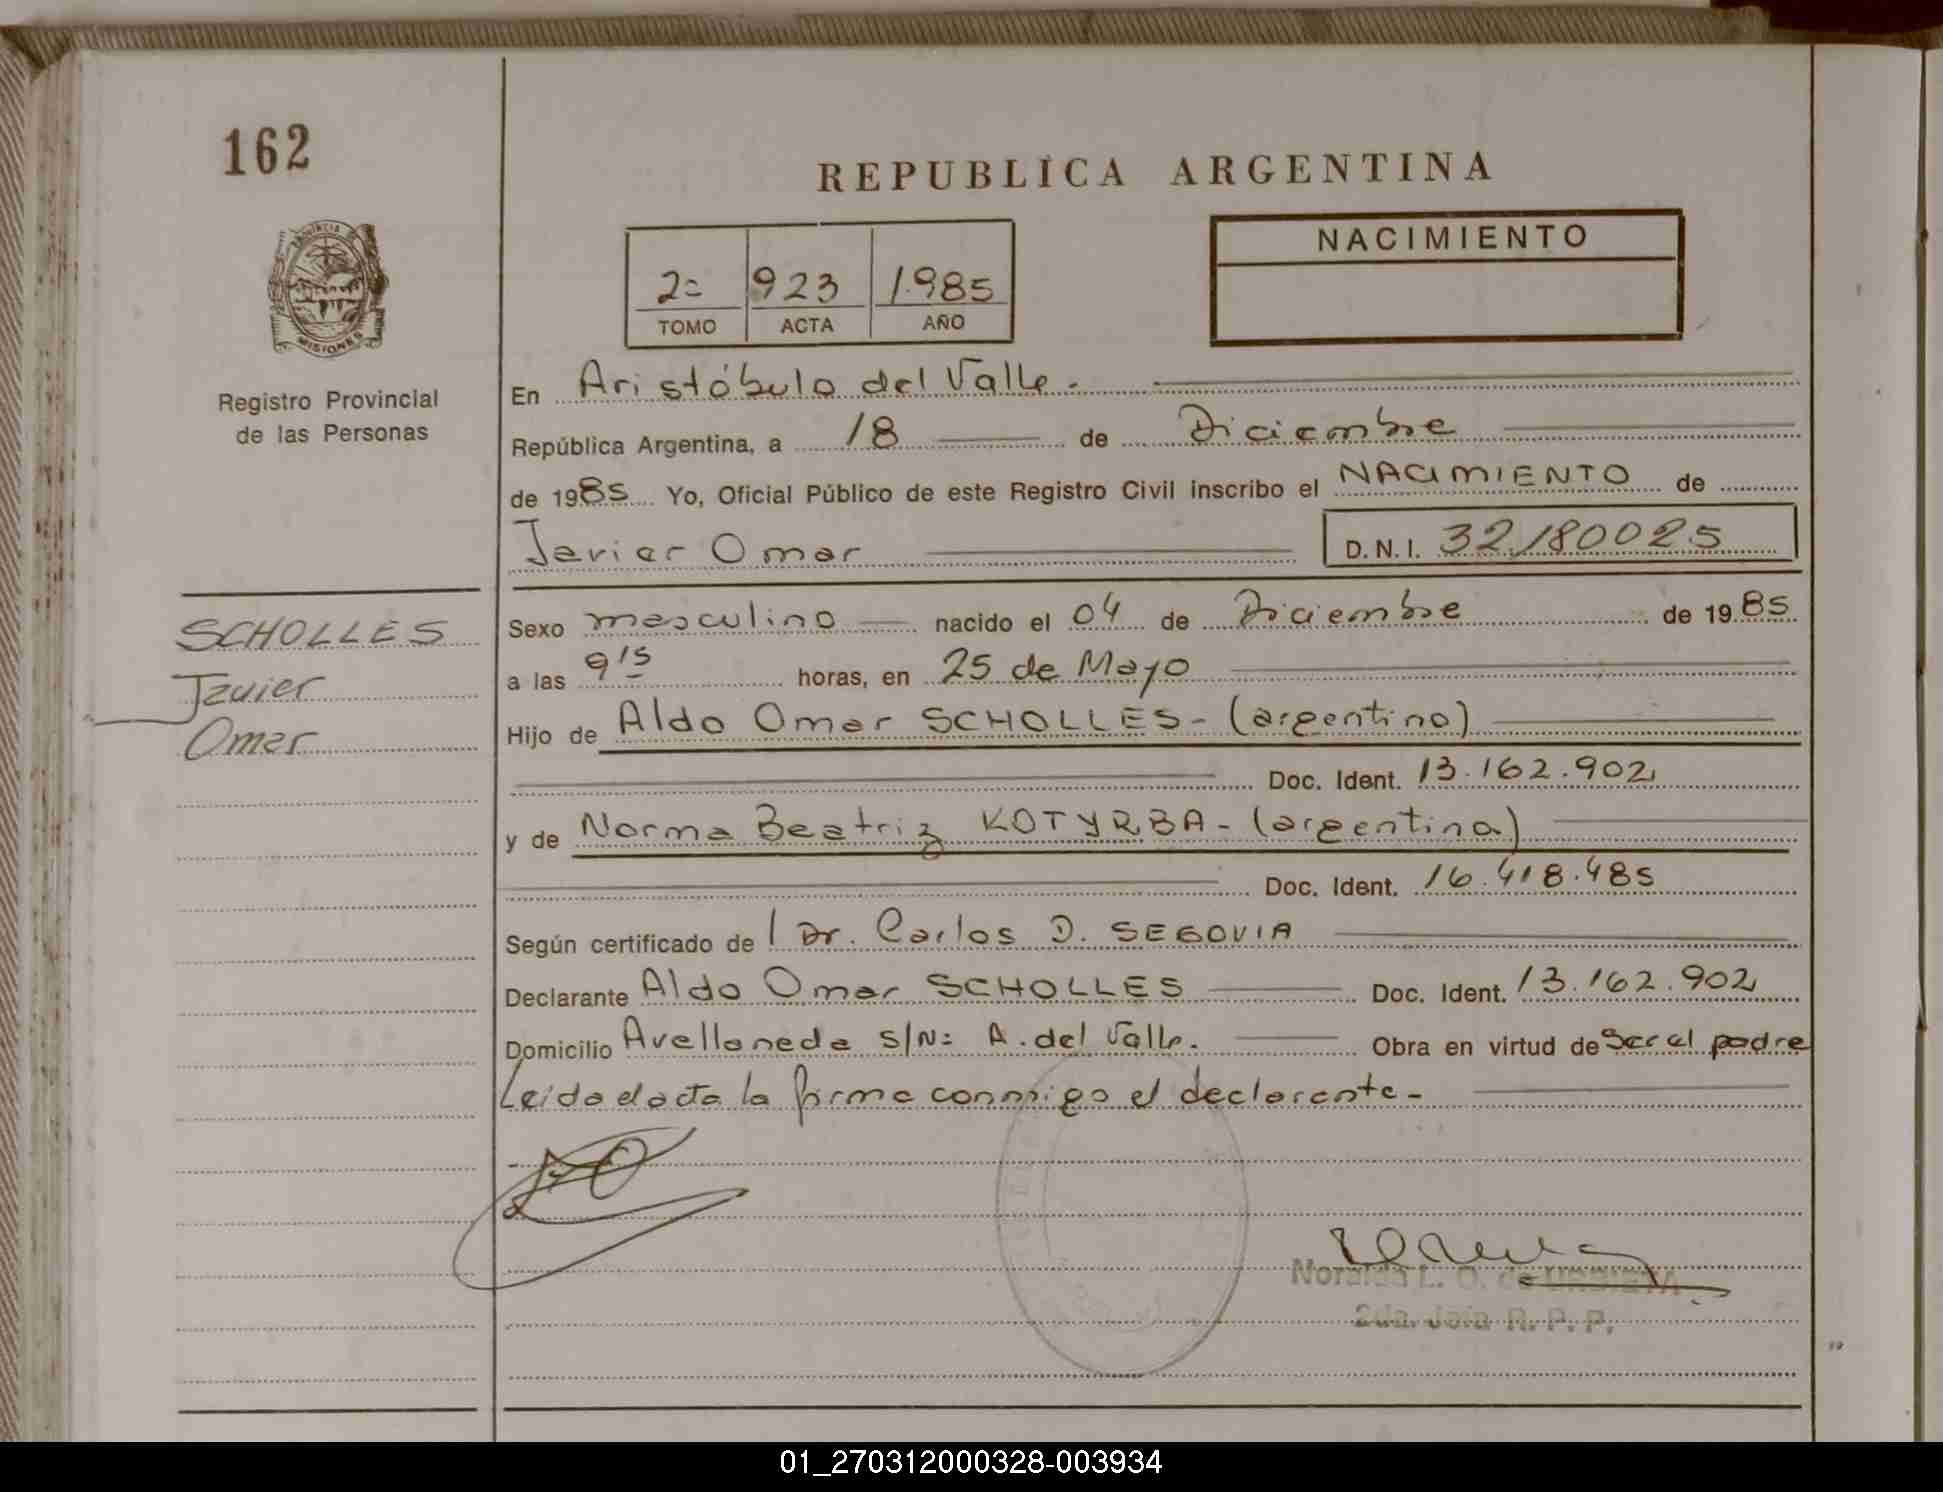 162
REPUBLICA ARGENTINA
PROVINCIA DE
MISIONES
Registro Provincial
de las Personas
2= 923 1.985
TOMO ACTA AÑO
NACIMIENTO
En Aristóbulo del Valle.
República Argentina, a 18 de Diciembre
de 1985 Yo, Oficial Público de este Registro Civil inscribo el NACIMIENTO de
Javier Omar D.N.I. 32180025
SCHOLLES
Javier
Omar
Sexo masculino nacido el 04 de Diciembre de 1985
a las 9 15 horas, en 25 de Mayo
Hijo de Aldo Omar SCHOLLES - (argentino)
Doc. Ident. 13.162.902
y de Norma Beatriz KOTYRBA - (argentina)
Doc. Ident. 16.418.485
Según certificado del Dr. Carlos D. SEGOVIA
Declarante Aldo Omar SCHOLLES Doc. Ident. 13.162.902
Domicilio Avellaneda s/N= A. del Valle. Obra en virtud de ser el padre
Leída el acta la firma conmigo el declarante -
L. O. de URBIETA
2da. Jefa R. P. P.
01_270312000328-003934